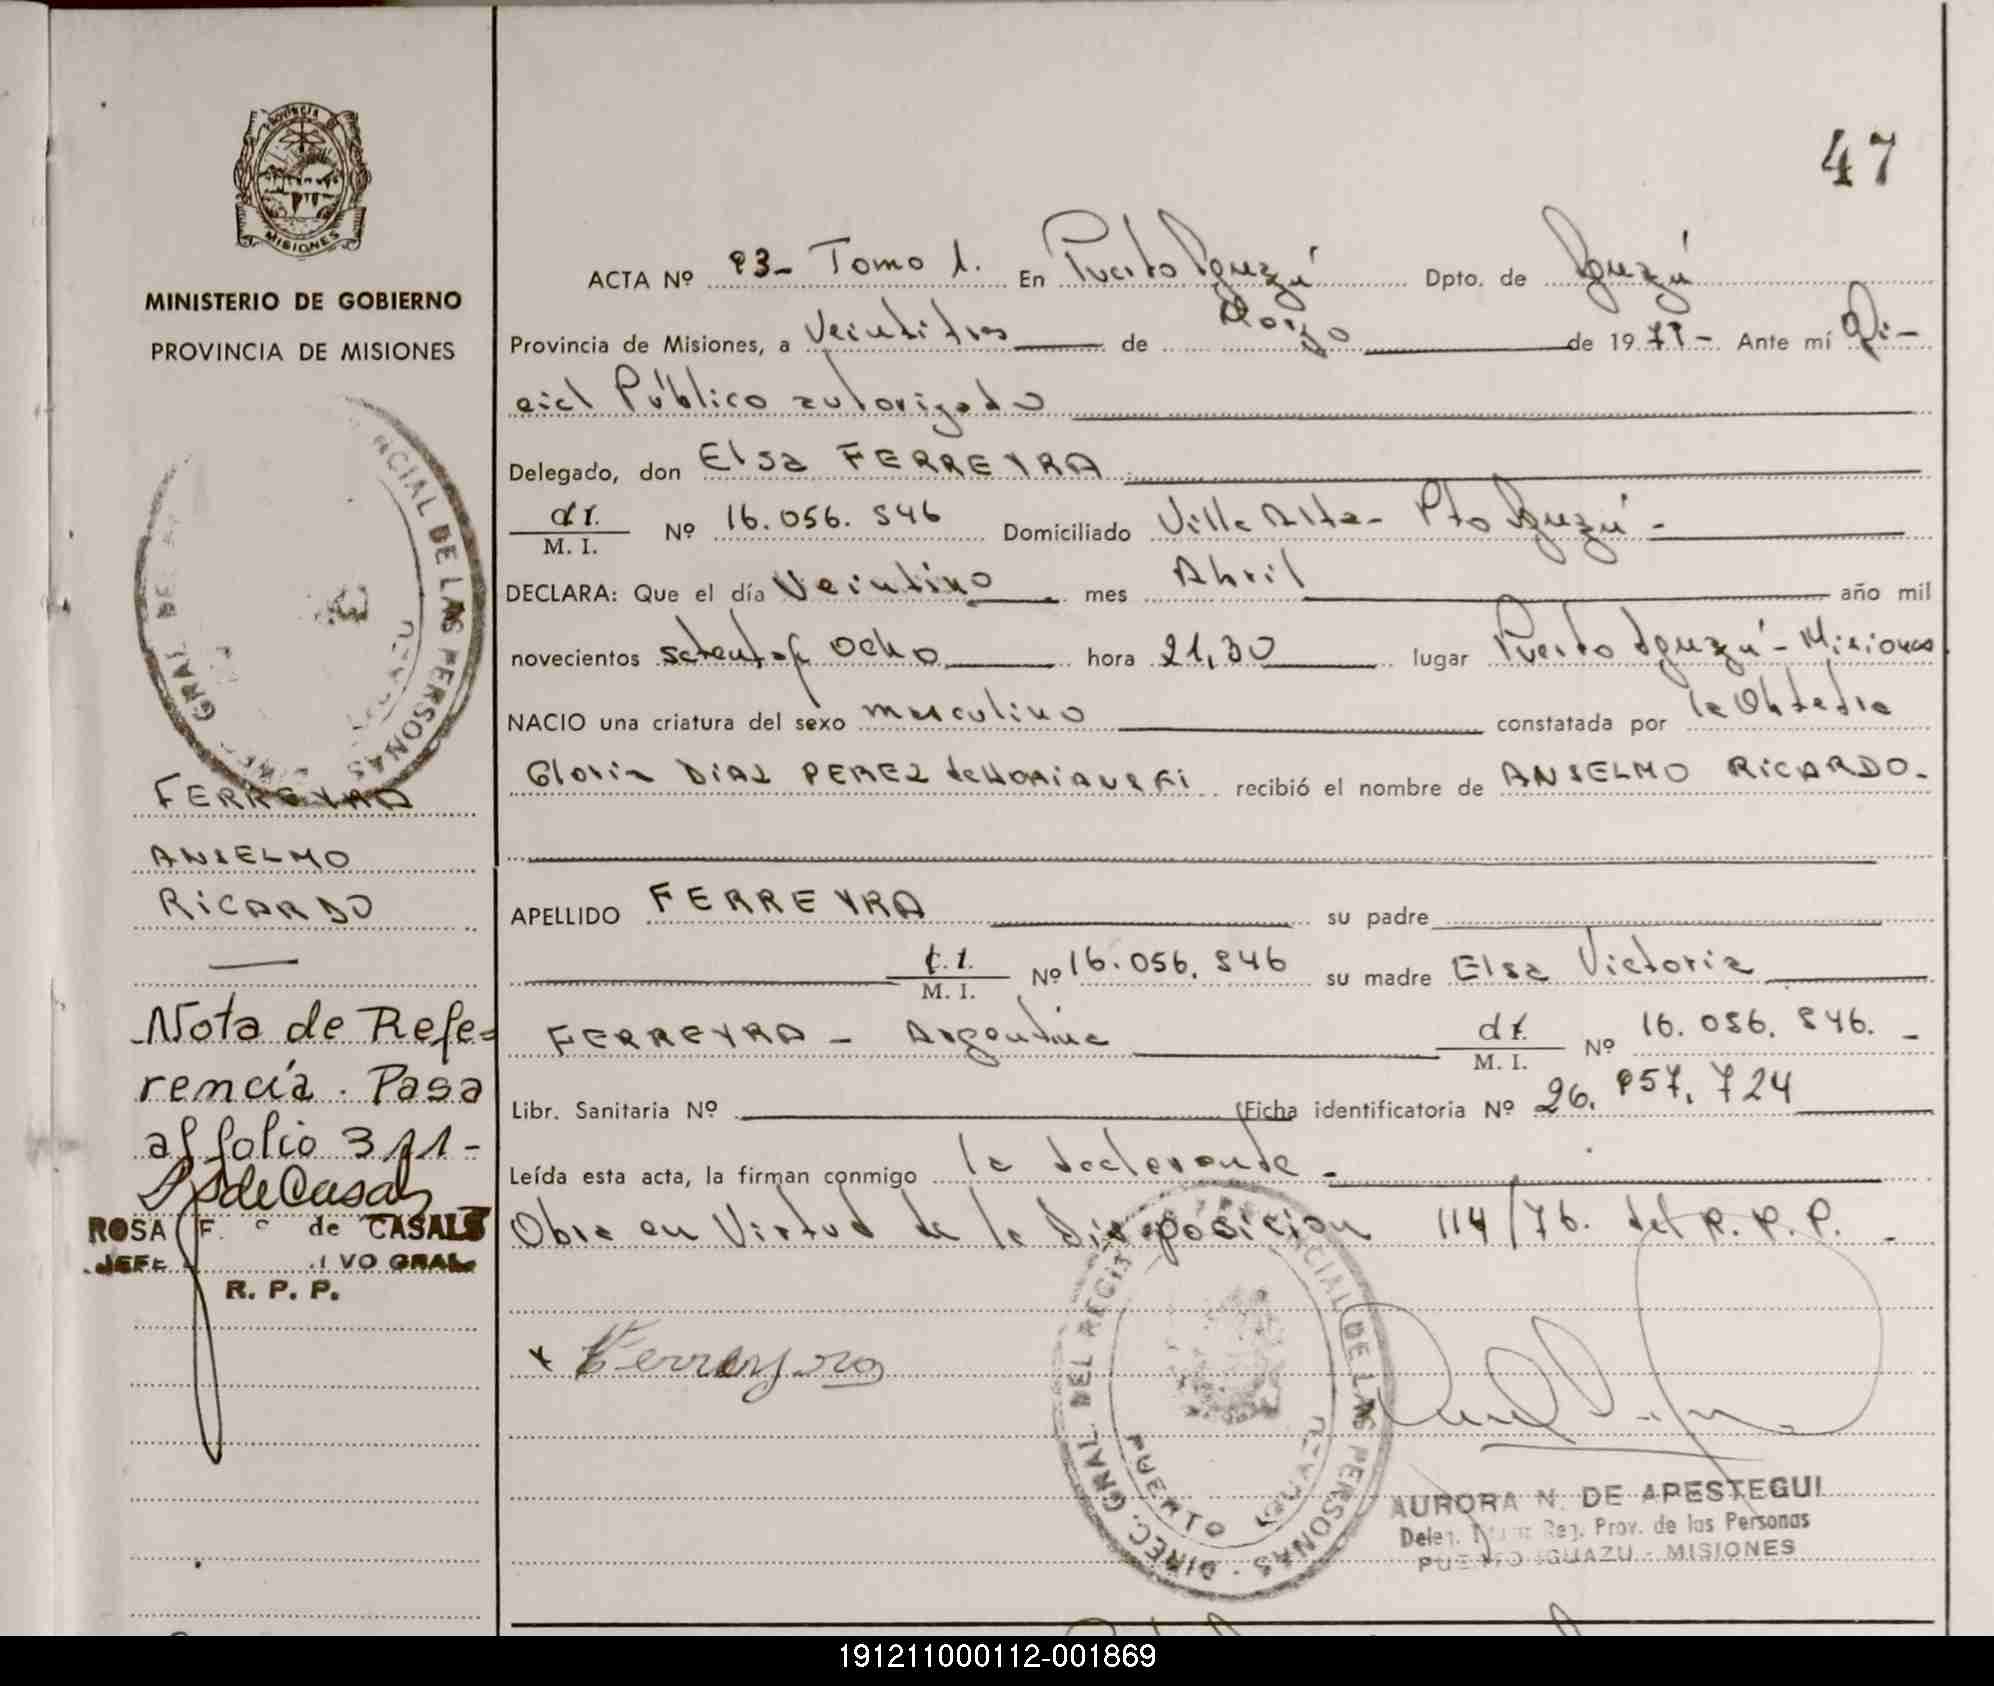 PROVINCIA DE
MISIONES
MINISTERIO DE GOBIERNO
PROVINCIA DE MISIONES
47
ACTA Nº 93- Tomo 1. En Puerto Iguazú Dpto. de Iguazú
Provincia de Misiones, a Veintitres de Mayo de 1978- Ante mí Ofi-
cial Público autorizado
Delegado, don Elsa FERREYRA
d I. M. I. Nº 16.056.846 Domiciliado Villa Alta- Pto Iguazú-
DECLARA: Que el día Veintiuno mes Abril año mil
novecientos setenta y ocho hora 21,30 lugar Puerto Iguazú- Misiones
NACIO una criatura del sexo masculino constatada por la Obtetra
Gloria DIAZ PEREZ de recibió el nombre de ANSELMO RICARDO-
APELLIDO FERREYRA su padre
C.I. M. I. Nº 16.056.846 su madre Elsa Victoria
FERREYRA - Argentina d I. M. I. Nº 16.056.846.-
Libr. Sanitaria Nº Ficha identificatoria Nº 26.957.724
Leída esta acta, la firman conmigo la declarante-
Obra en Virtud de la Disposicion 114/76. del R.P.P.-
x Ferreyra
DIREC. GRAL. DEL REGIS CIAL DE LAS PERSONAS
PUERTO IGUAZU
AURORA N. DE APESTEGUI
Deleg. Reg. Prov. de las Personas
PUERTO IGUAZU - MISIONES
GRAL DE NCIAL DE LAS PERSONAS
FERREYRA
ANSELMO
RICARDO
Nota de Refe-
rencia. Pasa
al folio 311-
ROSA F. de CASALS
JEFE VO GRAL
R. P. P.
191211000112-001869